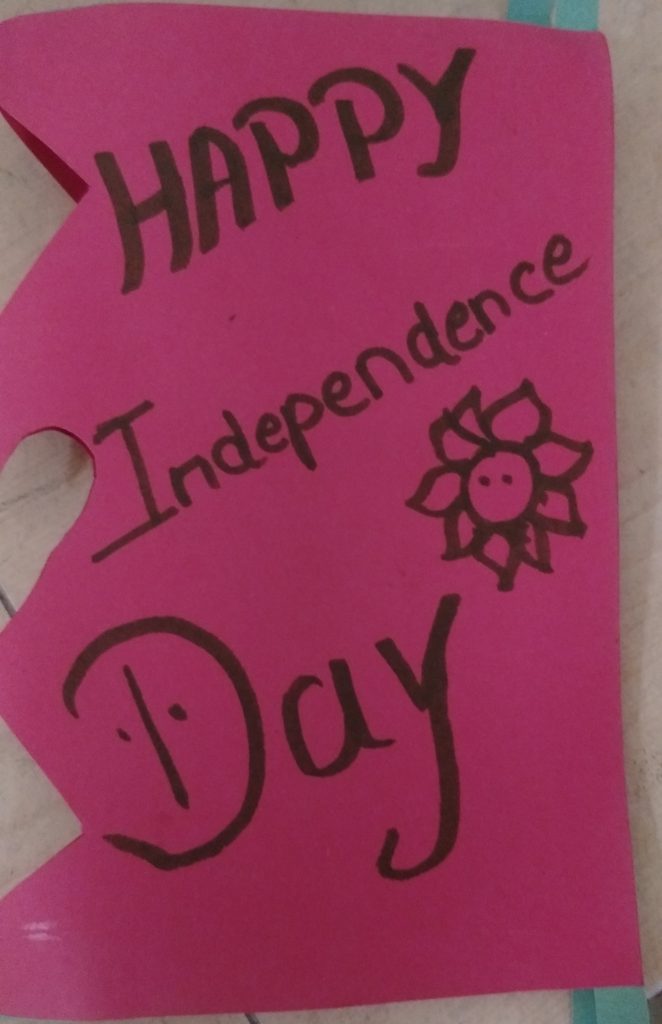 HAPPY
Independence
Day